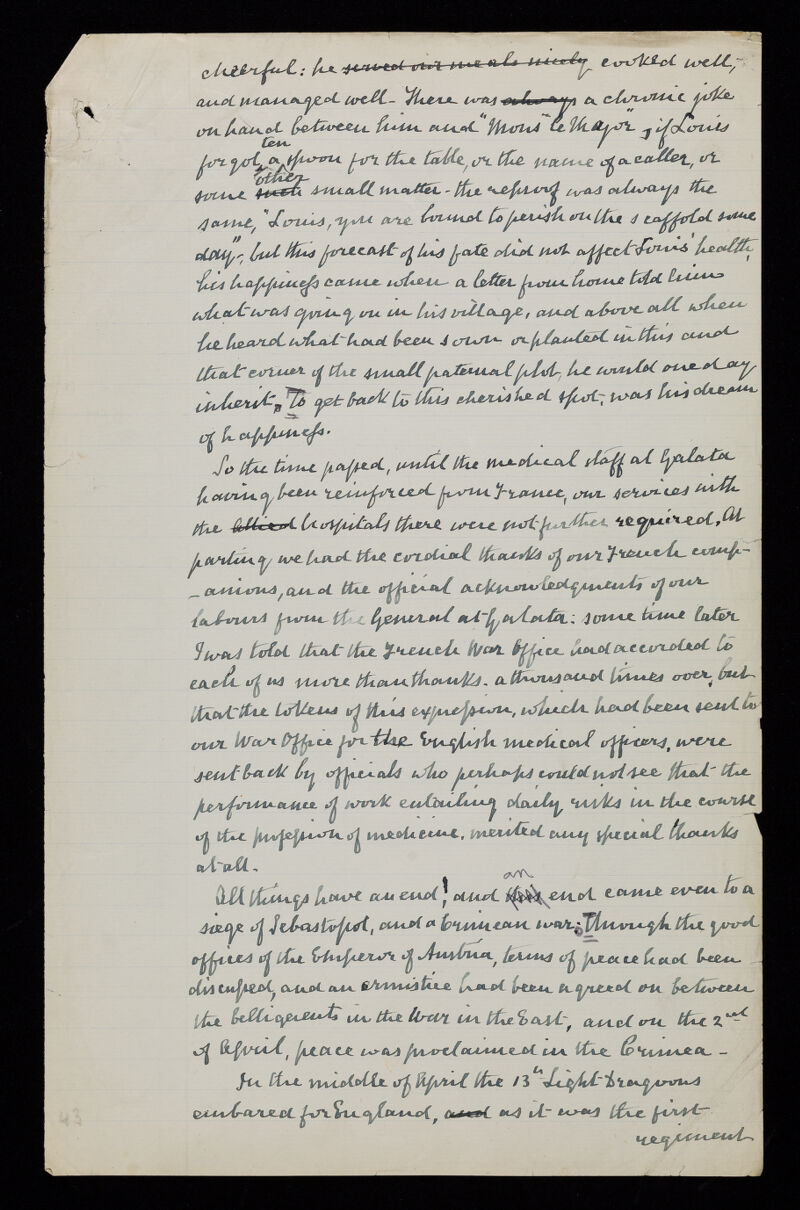 cheerful: he served our meals nicely cooked well,
and managed well - There was always a chronic joke
on hand between him and "Mons" le Major", if Louis
forgot ten a spoon for the table, or the name of a caller, or
some such other small matter - the reproof was always the
same, "Louis, you are bound to perish on the scaffold some
day", but this forecast of his fate did not affect Louis' health,
his happiness came when a letter from home told him
what was going on in his village, and above all when
he heard what had been sown or planted in this and
that corner of the small paternal plot, he would one day
inherit. To get back to this cherished spot, was his dream
of happiness.
So the time passed, until the medical staff at Galata
having been reinforced from France, our services with
the allied hospitals there were not further required. At
parting we had the cordial thanks of our French comp-
-anions, and the official acknowledgments of our
labours from the General at Galata: some time later
I was told that the French War Office had accorded to
each of us more than thanks - a thousand times over, but
that the tokens of this expression, which had been sent to
our War Office for the English medical officers, were
sent back by officials who perhaps could not see that the
performance of work entailing daily risks in the course
of the profession of medicine, merited any special thanks
at all.
All things have an end! and an end came even to a
siege of Sebastopol, and a Crimean war; Through the good
offices of the Emperor of Austria, terms of peace had been
discussed, and an armistice had been agreed on between
the belligerents in the War in the East, and on the 2nd
of April, peace was proclaimed in the Crimea -
In the middle of April the 13th Light Dragoons
embared for England, and as it was the first
regiment
43